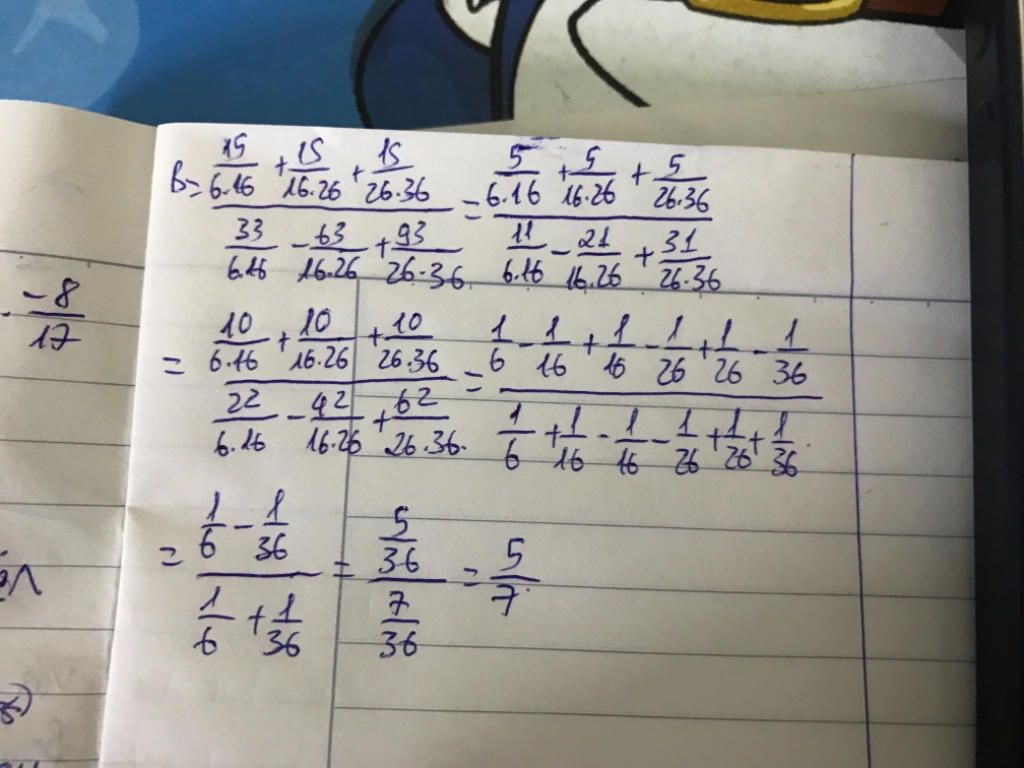 B = (15/6.16 + 15/16.26 + 15/26.36) / (33/6.16 - 63/16.26 + 93/26.36) = (5/6.16 + 5/16.26 + 5/26.36) / (11/6.16 - 21/16.26 + 31/26.36)
= (10/6.16 + 10/16.26 + 10/26.36) / (22/6.16 - 42/16.26 + 62/26.36.) = (1/6 - 1/16 + 1/16 - 1/26 + 1/26 - 1/36) / (1/6 + 1/16 - 1/16 - 1/26 + 1/26 + 1/36).
= (1/6 - 1/36) / (1/6 + 1/36) = (5/36) / (7/36) = 5/7.
-8/17